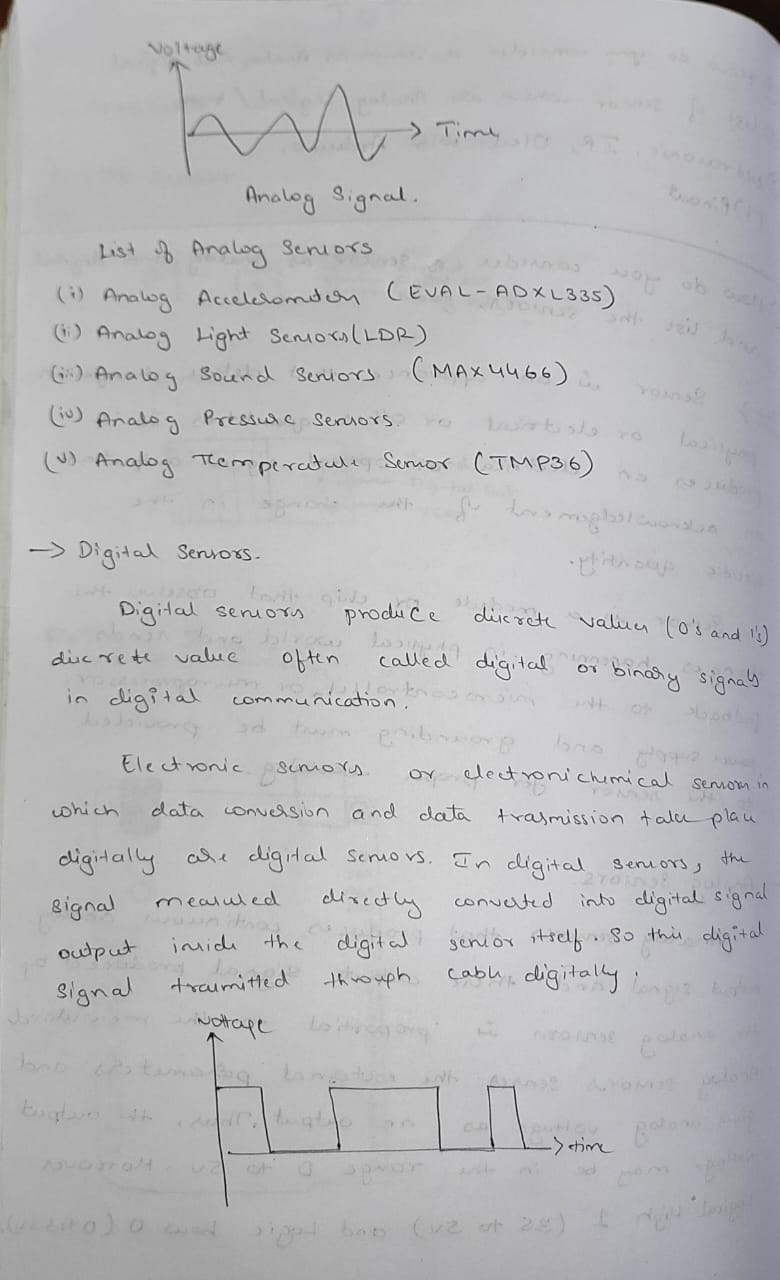 Voltage
Time
Analog Signal.
List of Analog Sensors
(i) Analog Accelerometer (EVAL-ADXL335)
(ii) Analog Light Sensors (LDR)
(iii) Analog Sound Sensors (MAX4466)
(iv) Analog Pressure Sensors.
(v) Analog Temperature Sensor (TMP36)
-> Digital Sensors.
Digital sensors produce discrete values (0's and 1's)
discrete value often called digital or binary signals
in digital communication.
Electronic sensors or electronichemical sensors in
which data conversion and data trasmission take place
digitally are digital sensors. In digital sensors, the
signal measured directly converted into digital signal
output inside the digital sensor itself. So this digital
signal trasmitted through cable digitally.
Voltage
time